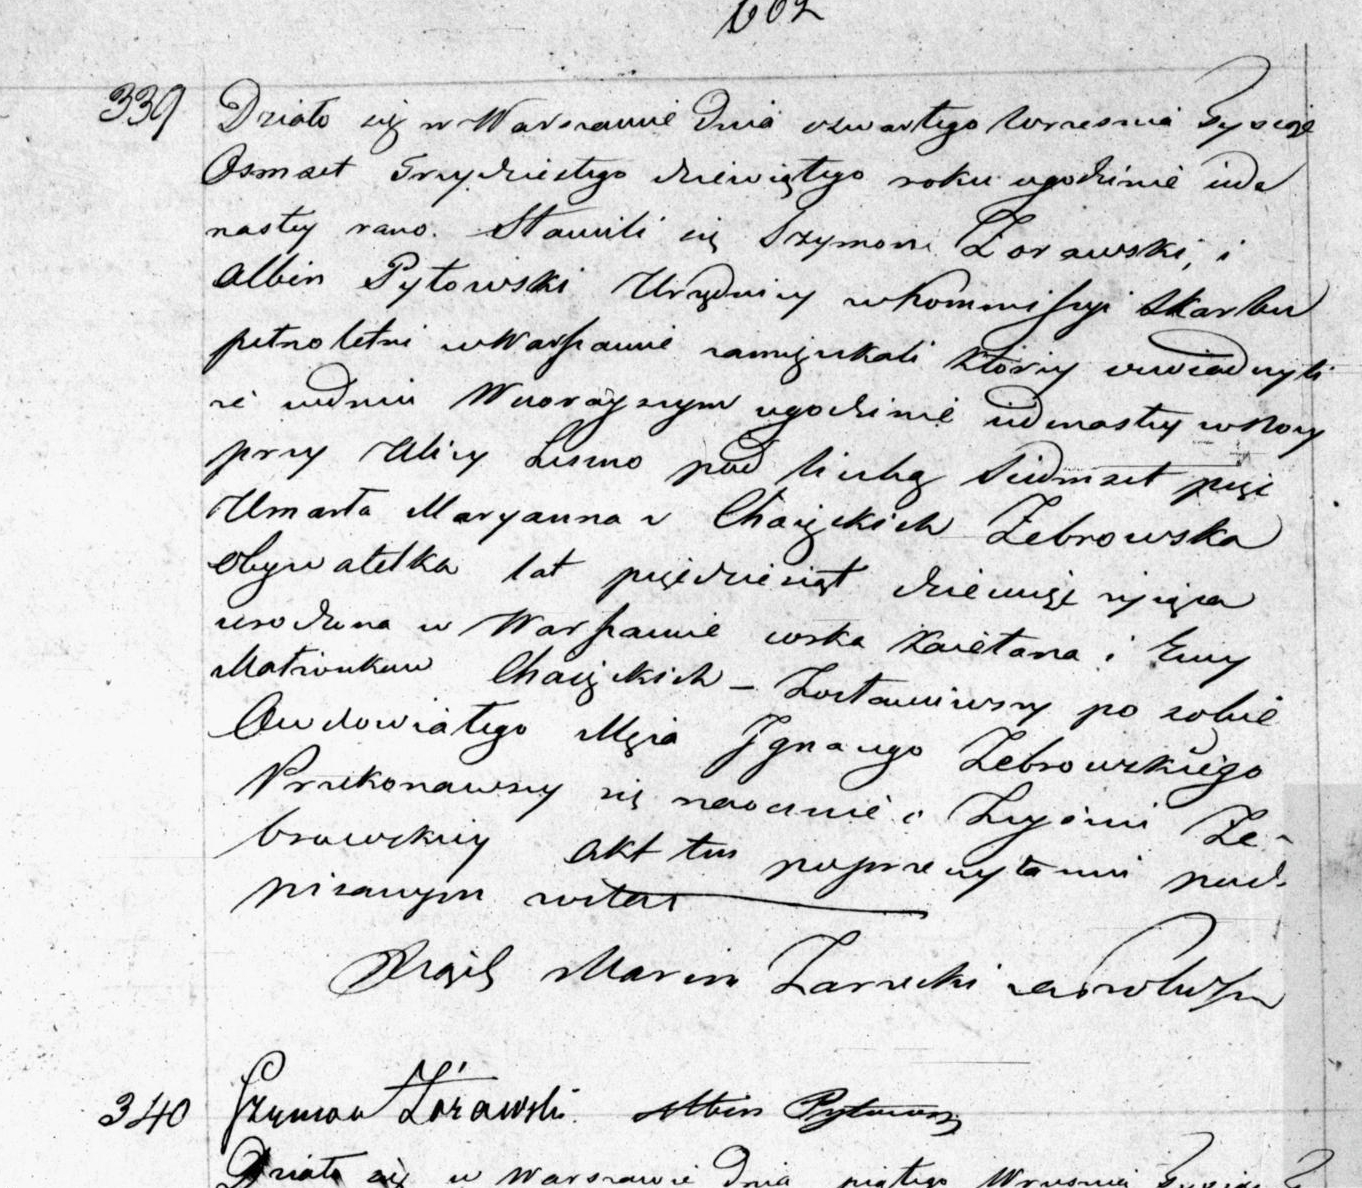 602
339 Działo się w Warszawie dnia czwartego Września tysiąc
Osmset Trzydziestego dziewiątego roku ugodzinie iede
nastey rano. Stawili się Szymon Zorawski, i
Albin Pytowski Urzędnicy w Kommissyi Skarbu
pełnoletni w Warszawie zamięszkali którzy oswiadczyli
że wdniu Wczorayszym ugodzinie iedenastey wnocy
przy Ulicy Leszno pod liczbą Siedmset pięć
Umarła Maryanna z Chaięckich Zebrowska
obywatelka lat pięcdziesiąt dziewięć żyiąca
urodzona w Warszawie corka Kaietana i Ewy
Małżonkow Chaięckich – Zostawiwszy po sobie
Owdowiałego Męża Ignacego Zebrowskiego
Przekonawszy się naocznie o Zeyściu Ze-
browskiey akt ten poprzeczytaniu pod-
pisanym został
Xiądz Marcin Zarzecki
Szymon Żórawski Albin
340 Działo się w Warszawie dnia piątego Września Tysiąc